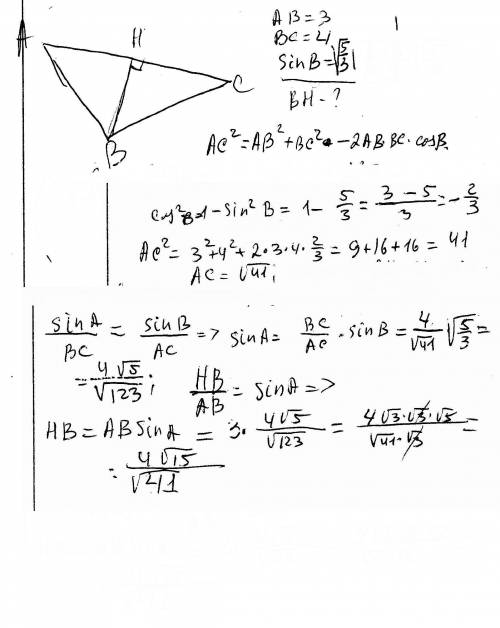 A
H
C
B
AB = 3
BC = 4
sin B = √5/3
BH - ?
AC² = AB² + BC² - 2AB BC · cos B
cos²B = 1 - sin² B = 1 - 5/3 = (3 - 5)/3 = -2/3
AC² = 3² + 4² + 2 · 3 · 4 · 2/3 = 9 + 16 + 16 = 41
AC = √41;
sin A/BC = sin B/AC => sin A = BC/AC · sin B = 4/√41 √5/3 =
= 4√5/√123; HB/AB = sin A =>
HB = AB sin A = 3 · 4√5/√123 = 4√3·√3·√5/√41·√3 =
= 4√15/√41